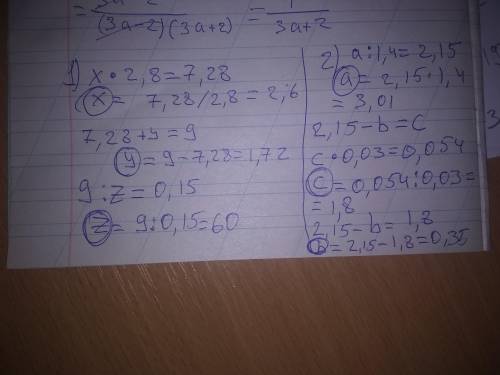 (3a-2)(3a+2) = 3a+2
1) x • 2,8 = 7,28
x = 7,28/2,8 = 2,6
7,28 + y = 9
y = 9 - 7,28 = 1,72
9 : z = 0,15
z = 9 : 0,15 = 60
2) a : 1,4 = 2,15
a = 2,15 • 1,4
= 3,01
2,15 - b = c
c • 0,03 = 0,054
c = 0,054 : 0,03 =
= 1,8
2,15 - b = 1,8
b = 2,15 - 1,8 = 0,35